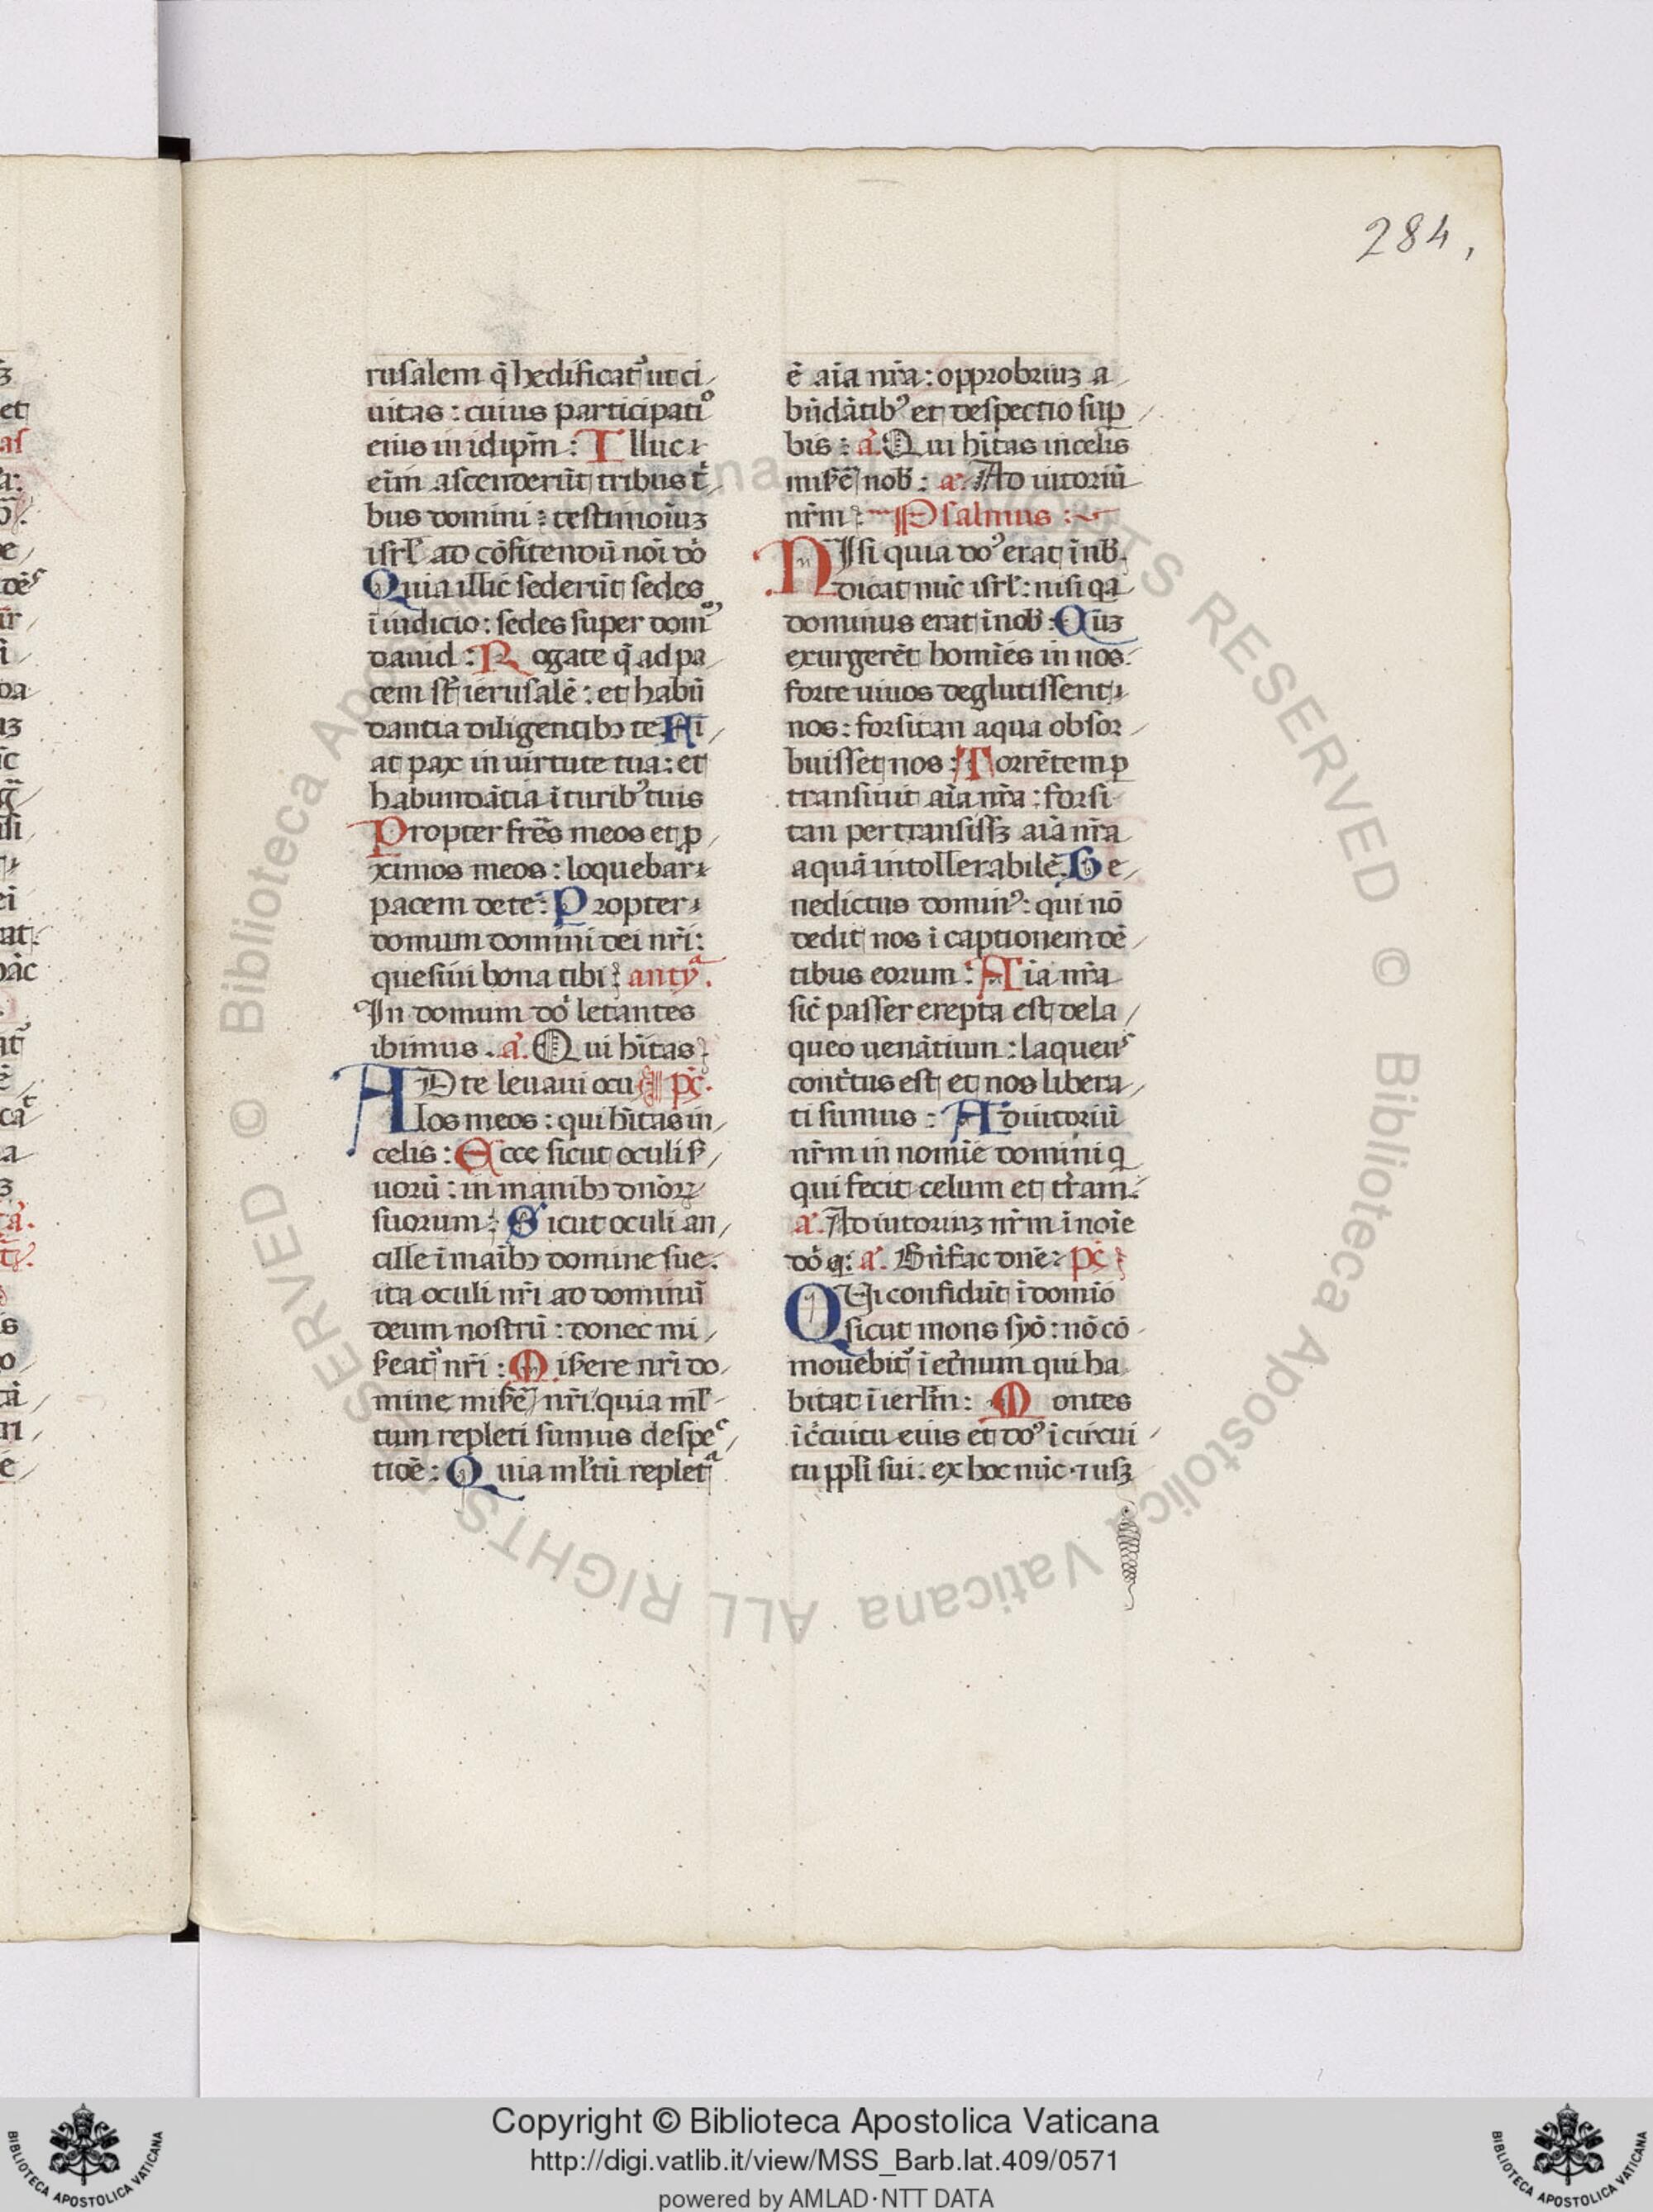 284,
rusalem q̄ hedificat᷑ ut ci/
uitas : cuius participatiͦ
eius in idip̄m : Illuc
eīm ascenderūt tribus t̄/
bus domini : testimoīuꝫ
isrl̄ ad cōfitendū noī dō
Quia illic sederūt sedes
ī iudicio : sedes super domū
dauid : Rogate q̄ ad pa/
cem st̄ ierusalē : et habū
dantia diligentibꝫ te. Fi/
at pax in uirtute tua : et
habundātia ī turibꝰ tuis
Propter frēs meos et ꝓ/
ximos meos : loquebar
pacem de te : Propter
domum domini dei nr̄i :
quesiui bona tibi : antyᵃ.
In domum dō letantes
ibimus . a᷑. Qui hītas
AD te leuaui ocu ps̄.
los meos : qui hītas in
celis : Ecce sicut oculi s̄/
uorū : in manibꝫ dn̄oꝝ
suorum : Sicut oculi an/
cille ī māibꝫ domine sue :
ita oculi nr̄i ad dominū
deum nostrū : donec mi/
s̄eat᷑ nr̄i : Mis̄ere nr̄i do/
mine mis̄e᷑ nr̄i quia ml̄
tum repleti sumus despeᶜ/
tiōe : Quia ml̄tū repletᵃ
ē aīa nr̄a : opprobriuꝫ a/
būdātibꝰ et despectio suꝑ/
bis : a᷑. Qui hītas in celis
mis̄e᷑ nob̄ : a᷑. Adiutoriū
nr̄m : Psalmus :
NIsi quia doꝰ erat ī nob̄.
dicat nūc isrl̄ : nisi qa
dominus erat ī nob̄ : Cūꝫ
exurgerēt homīes in nos :
forte uiuos deglutissent
nos : forsitan aqua obsor/
buisset nos : Torrētem ꝑ
transiuit aīa nr̄a : forsi
tan pertransissꝫ aīa nr̄a
aquā intollerabilē. Be/
nedictus dominꝰ : qui nō
dedit nos ī captionem dē/
tibus eorum : Aīa nr̄a
sic̄ passer erepta est de la/
queo uenātium : laqueuˢ
cont᷑tus est et nos libera/
ti sumus : Adiutoriū
nr̄m in nomīe domini q
qui fecit celum et t᷑ram :
a᷑. Adiutoriuꝫ nr̄m ī noīe
dō q : a᷑. Bn̄fac dn̄e : ps̄
QUi confidūt ī domīo
sicut mons syō : nō cō
mouebit᷑ ī et᷑num qui ha
bitat ī ierl̄m : Montes
ī c᷑cuitu eius et doꝰ ī circui/
tu ppl̄i sui : ex hoc nūc ⁊ usꝫ
Copyright © Biblioteca Apostolica Vaticana
http://digi.vatlib.it/view/MSS_Barb.lat.409/0571
powered by AMLAD·NTT DATA
BIBLIOTECA APOSTOLICA VATICANA
BIBLIOTECA APOSTOLICA VATICANA
© Biblioteca Apostolica Vaticana ALL RIGHTS RESERVED © Biblioteca Apostolica Vaticana ALL RIGHTS RESERVED